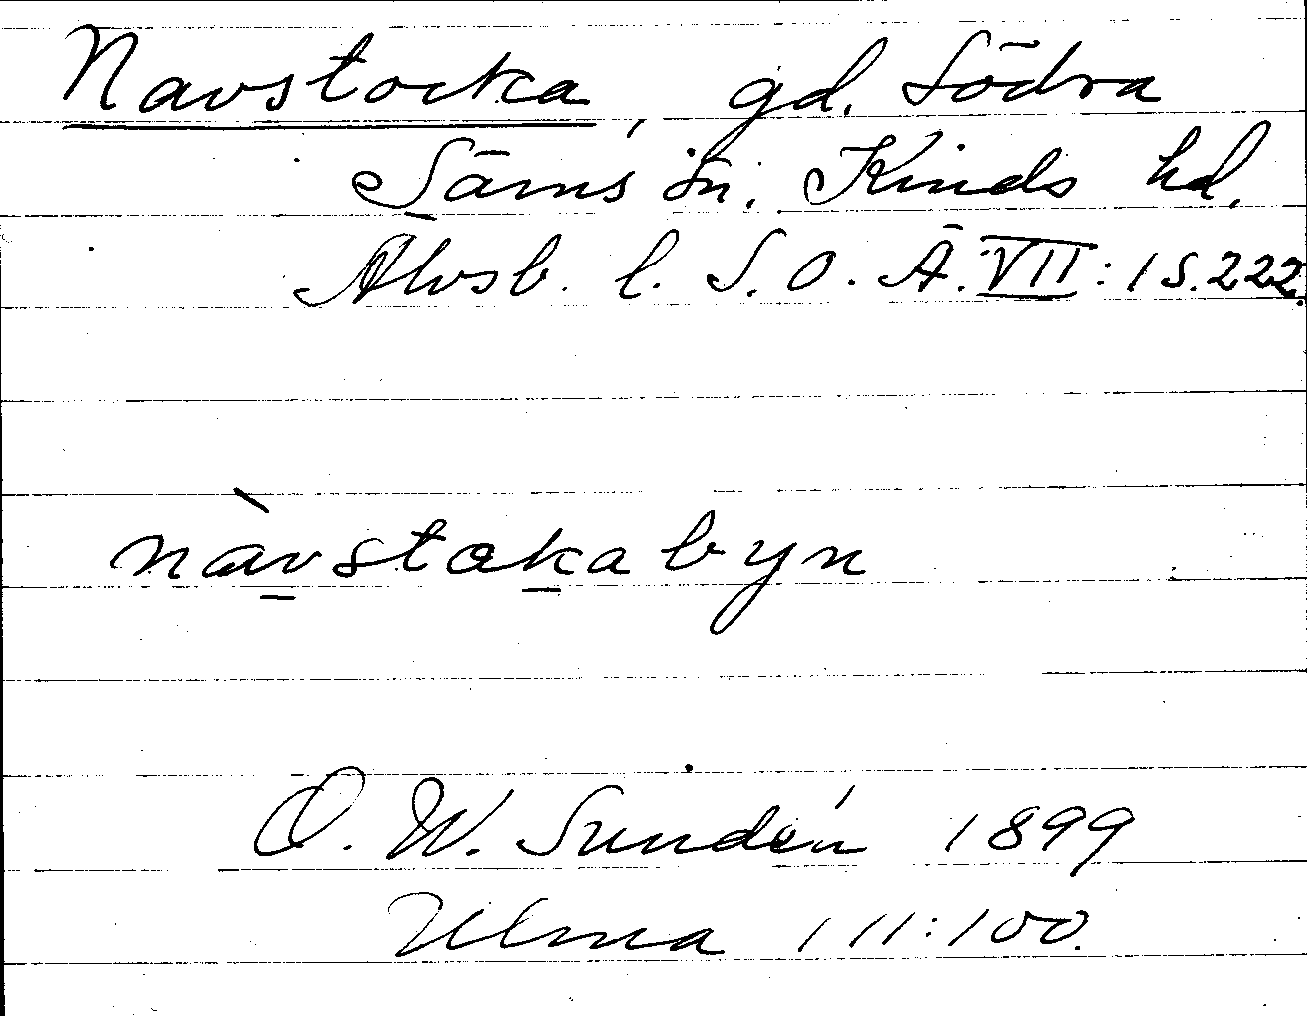 Navstocka, gd. Södra
Säms sn. Kinds hd.
Älvsb. l. S.O.Ä. VII:1 S.222.
nàvstakabyn
O. W. Sundén 1899
Ulma 111:100.